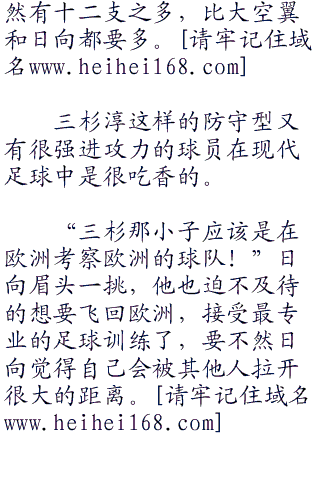 然有十二支之多，比大空翼
和日向都要多。[请牢记住域
名www.heihei168.com]
三杉淳这样的防守型又
有很强进攻力的球员在现代
足球中是很吃香的。
“三杉那小子应该是在
欧洲考察欧洲的球队！”日
向眉头一挑，他也迫不及待
的想要飞回欧洲，接受最专
业的足球训练了，要不然日
向觉得自己会被其他人拉开
很大的距离。[请牢记住域名
www.heihei168.com]